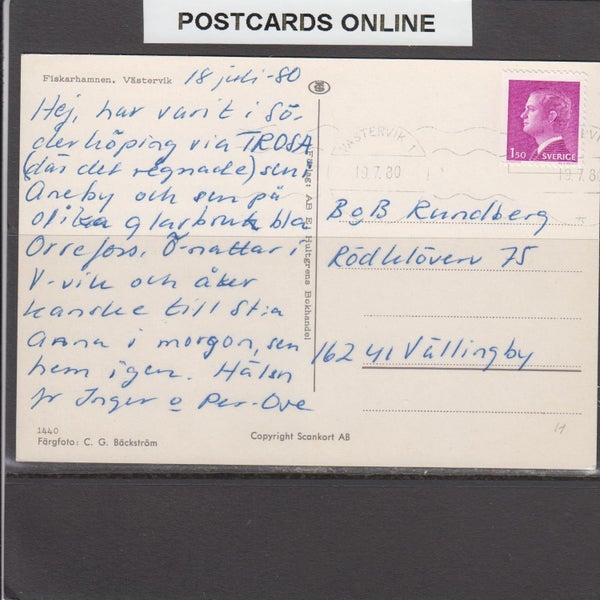 POSTCARDS ONLINE
Fiskarhamnen. Västervik
18 juli -80
Hej, har varit i Sö-
derköping via TROSA
(där det regnade) sen
Aneby och sen på
olika glasbruk bla
Orrefors. Ö-nattar i
V-vik och åker
kanske till St:a
Anna i morgon, sen
hem igen. Hälsn
fr Inger o Per-Ove
1440
Färgfoto: C. G. Bäckström
Förlag: AB Ej Hultgrens Bokhandel
Copyright Scankort AB
VÄSTERVIK 1
19.7.80
19.7.80
1.50 SVERIGE
BoB Rundberg
Rödklöverv 75
162 41 Vällingby